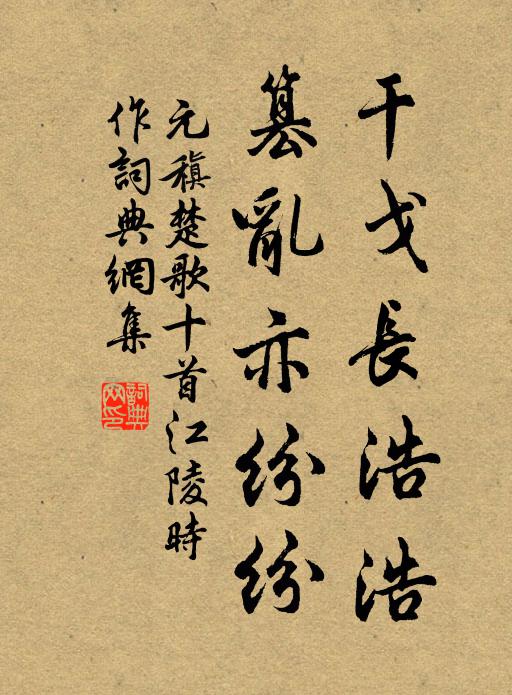 干戈長浩浩
篡亂亦紛紛
元稹楚歌十首江陵時
作詞典網集
詞典
网印